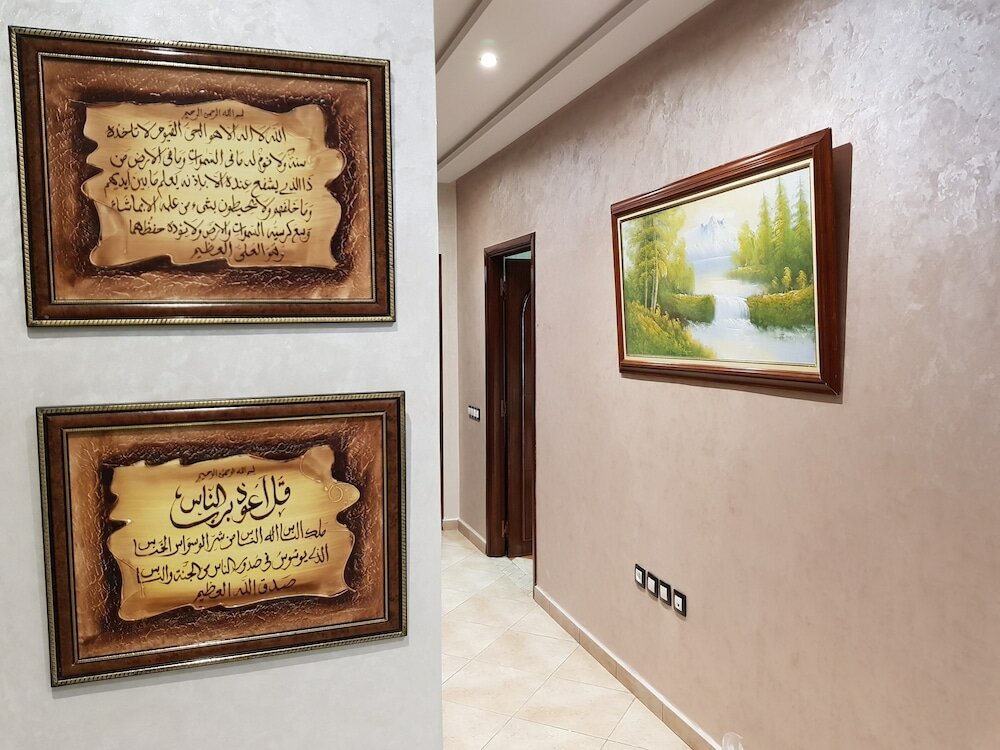 بسم الله الرحمن الرحيم
الله لا اله الا هو الحي القيوم لا تاخذه
سنة ولا نوم له ما في السموات وما في الارض من
ذا الذي يشفع عنده الا باذنه يعلم ما بين ايديهم
وما خلفهم ولا يحيطون بشيء من علمه الا بما شاء
وسع كرسيه السموات والارض ولا يؤده حفظهما
وهو العلي العظيم
بسم الله الرحمن الرحيم
قل اعوذ برب الناس
ملك الناس اله الناس من شر الوسواس الخناس
الذي يوسوس في صدور الناس من الجنة والناس
صدق الله العظيم